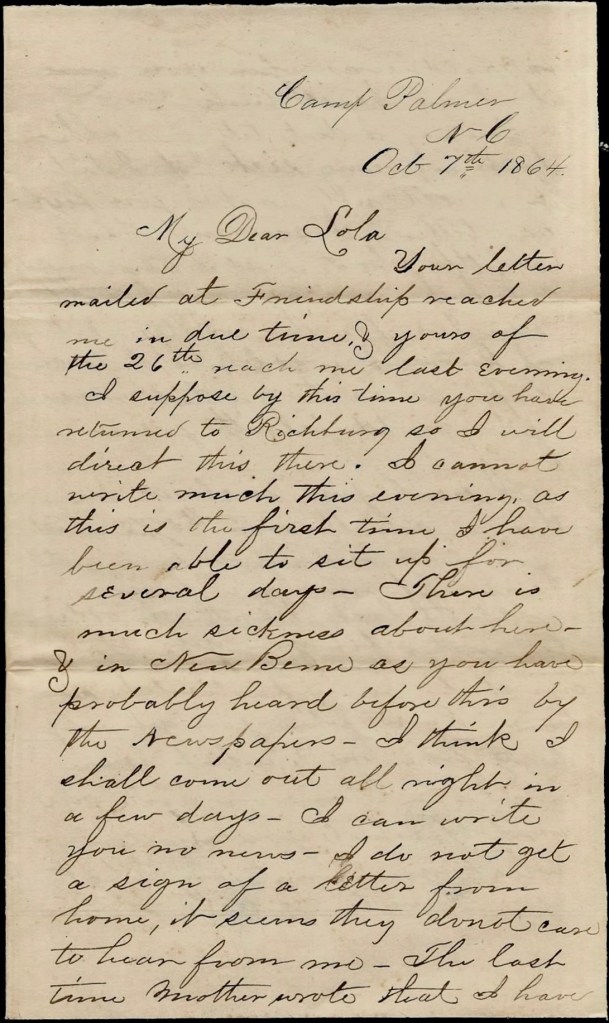 Camp Palmer
N C
Oct 7th 1864.
My Dear Lola
Your letter
mailed at Friendship reached
me in due time, & yours of
the 26th reach me last evening.
I suppose by this time you have
returned to Richburg so I will
direct this there. I cannot
write much this evening, as
this is the first time I have
been able to sit up for
several days - There is
much sickness about here -
& in New Berne as you have
probably heard before this by
the Newspapers - I think I
shall come out all right in
a few days - I can write
you no news - I do not get
a sign of a letter from
home, it seems they do not care
to hear from me - The last
time Mother wrote that I have